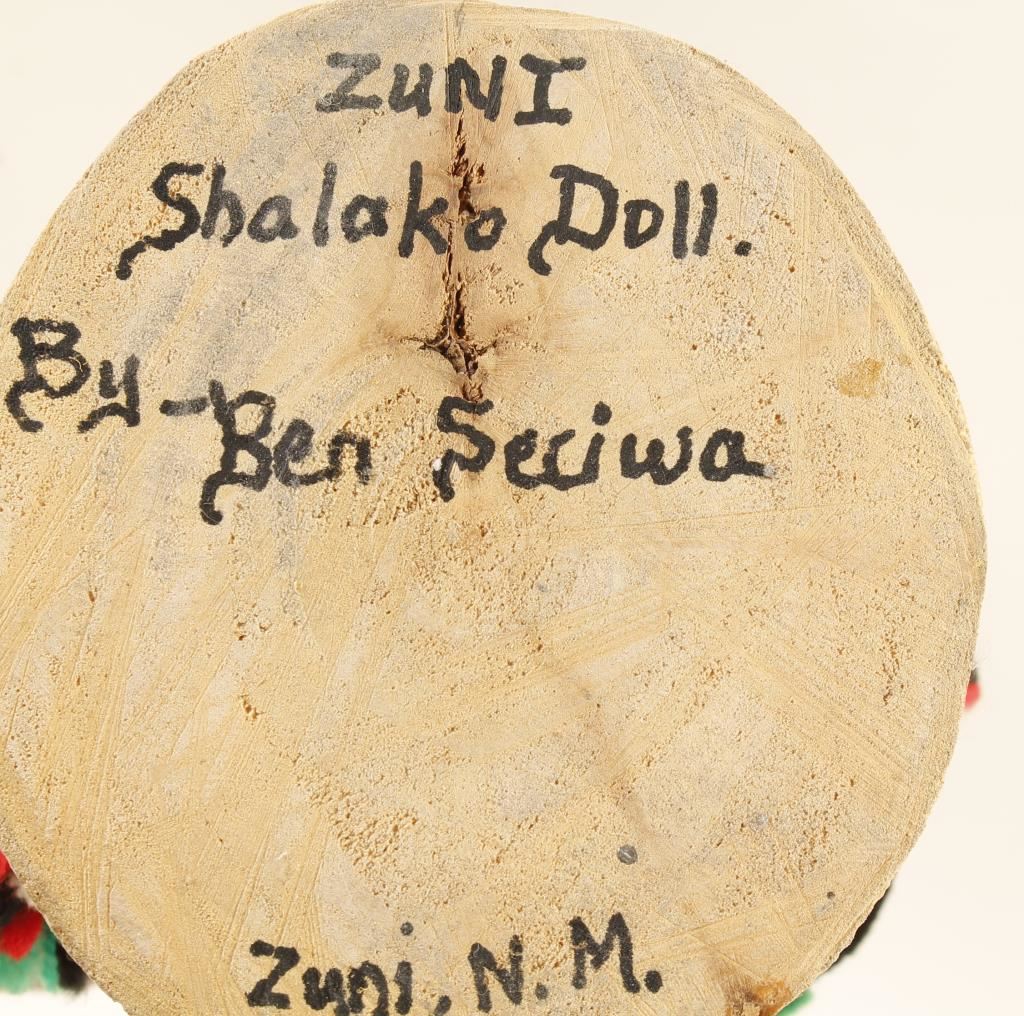 ZUNI
Shalako Doll.
By - Ben Seciwa
Zuni, N.M.